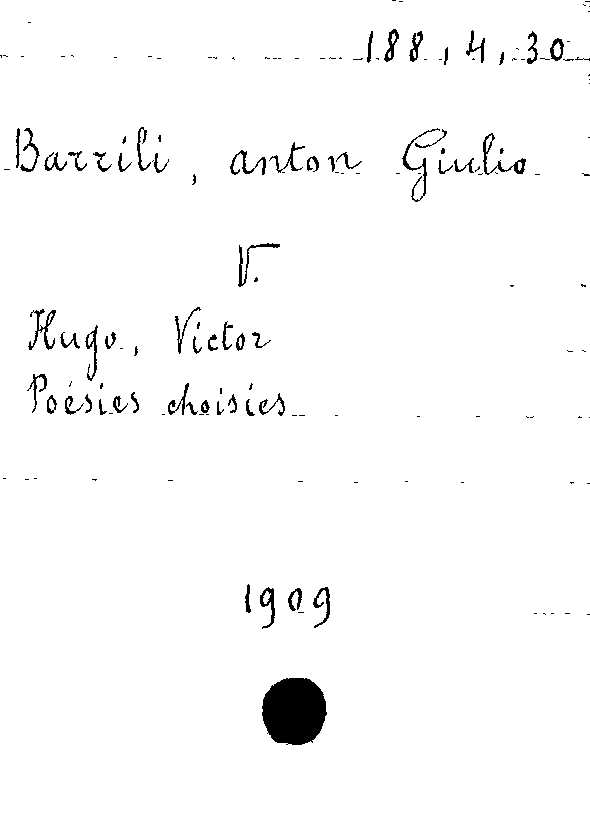 188,4,30
Barrili, anton Giulio
V.
Hugo, Victor
Poésies choisies
1909